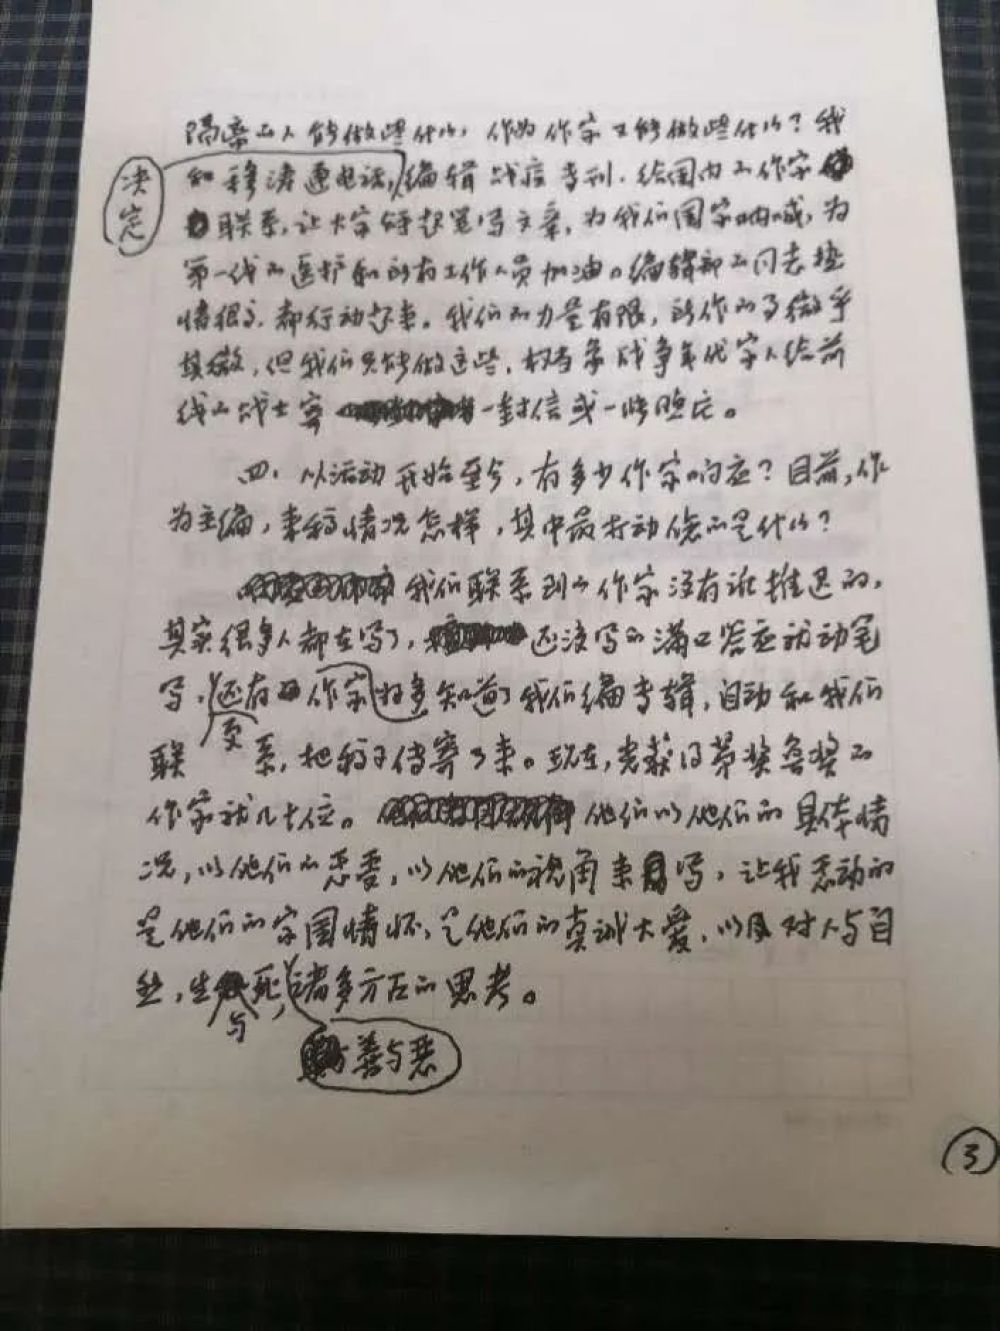 隔离的人能做些什么,作为作家又能做些什么?我
和穆涛通电话,编辑战疫专刊,给国内的作家
决定
联系,让大家拿起笔写文章,为我们国家呐喊,为
第一线的医护和所有工作人员加油。编辑部的同志热
情很高,都行动起来。我们的力量有限,所作的了微乎
其微,但我们只能做这些,权当多战争年代家人给前
线的战士寄一封信或一些照片。
四、从活动开始至今,有多少作家响应?目前,作
为主编,来稿情况怎样,其中最打动您的是什么?
我们联系到的作家没有谁推迟的,
其实很多人都在写了,还没写的满口答应就动笔
写,还有作家知道了我们编专辑,自动和我们
更多
联系,把稿子传寄了来。现在,光获得茅奖鲁奖的
作家就几十位。他们以他们的具体情
况,以他们的感受,以他们的视角来写,让我感动的
是他们的家国情怀,是他们的真诚大爱,以及对人与自
然,生死,诸多方面的思考。
与
善与恶
3